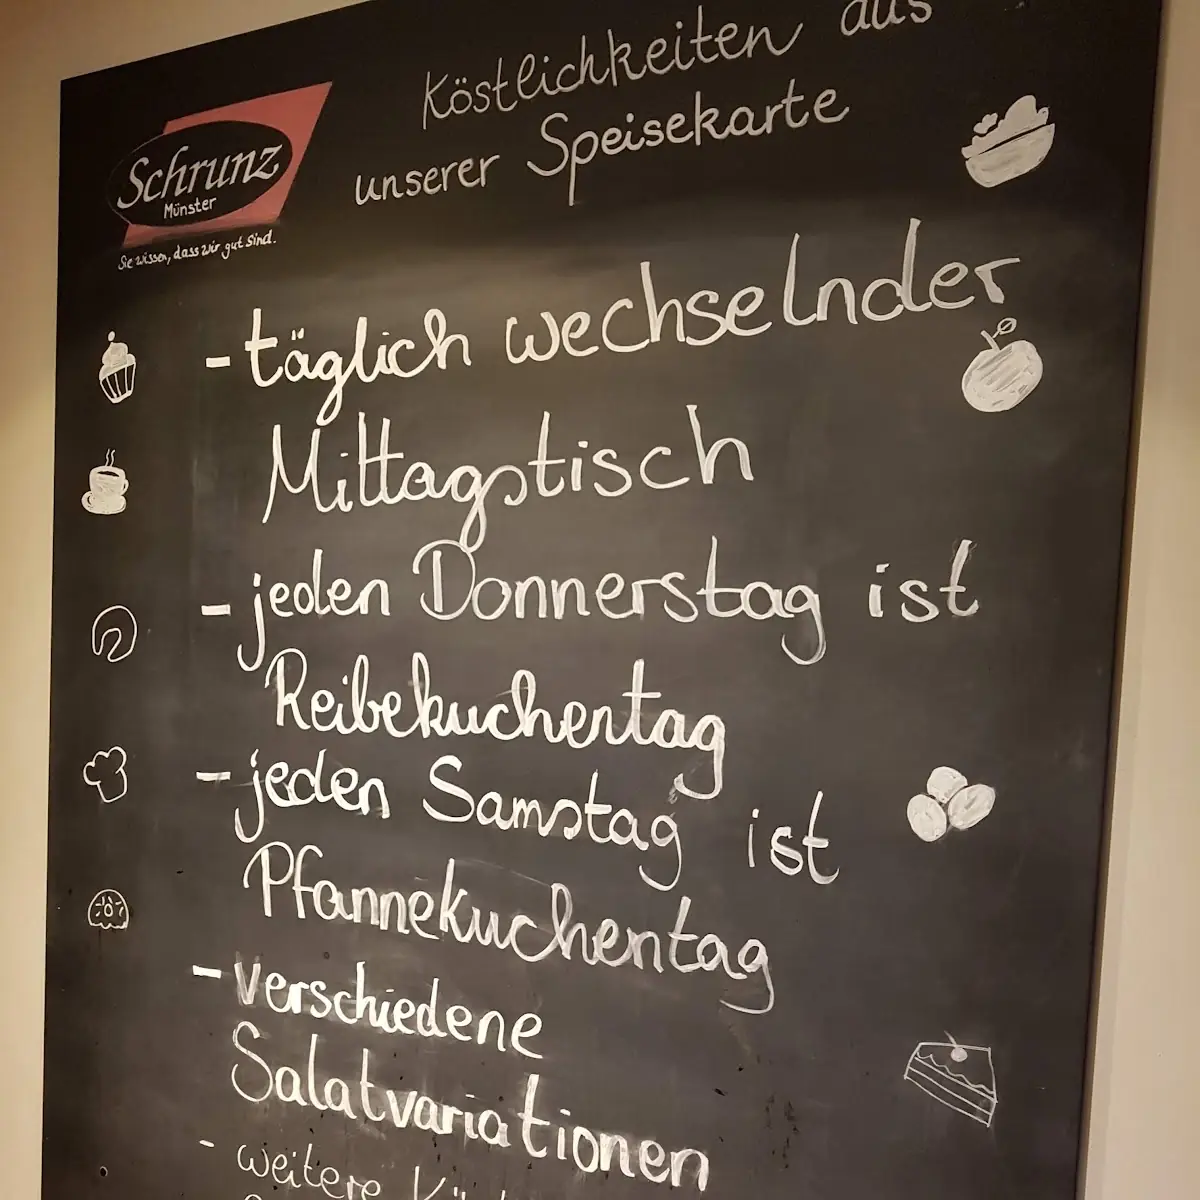 Köstlichkeiten aus
unserer Speisekarte
Schrunz
Münster
Sie wissen, dass wir gut sind.
- täglich wechselnder
Mittagstisch
- jeden Donnerstag ist
Reibekuchentag
- jeden Samstag ist
Pfannekuchentag
- verschiedene
Salatvariationen
- weitere